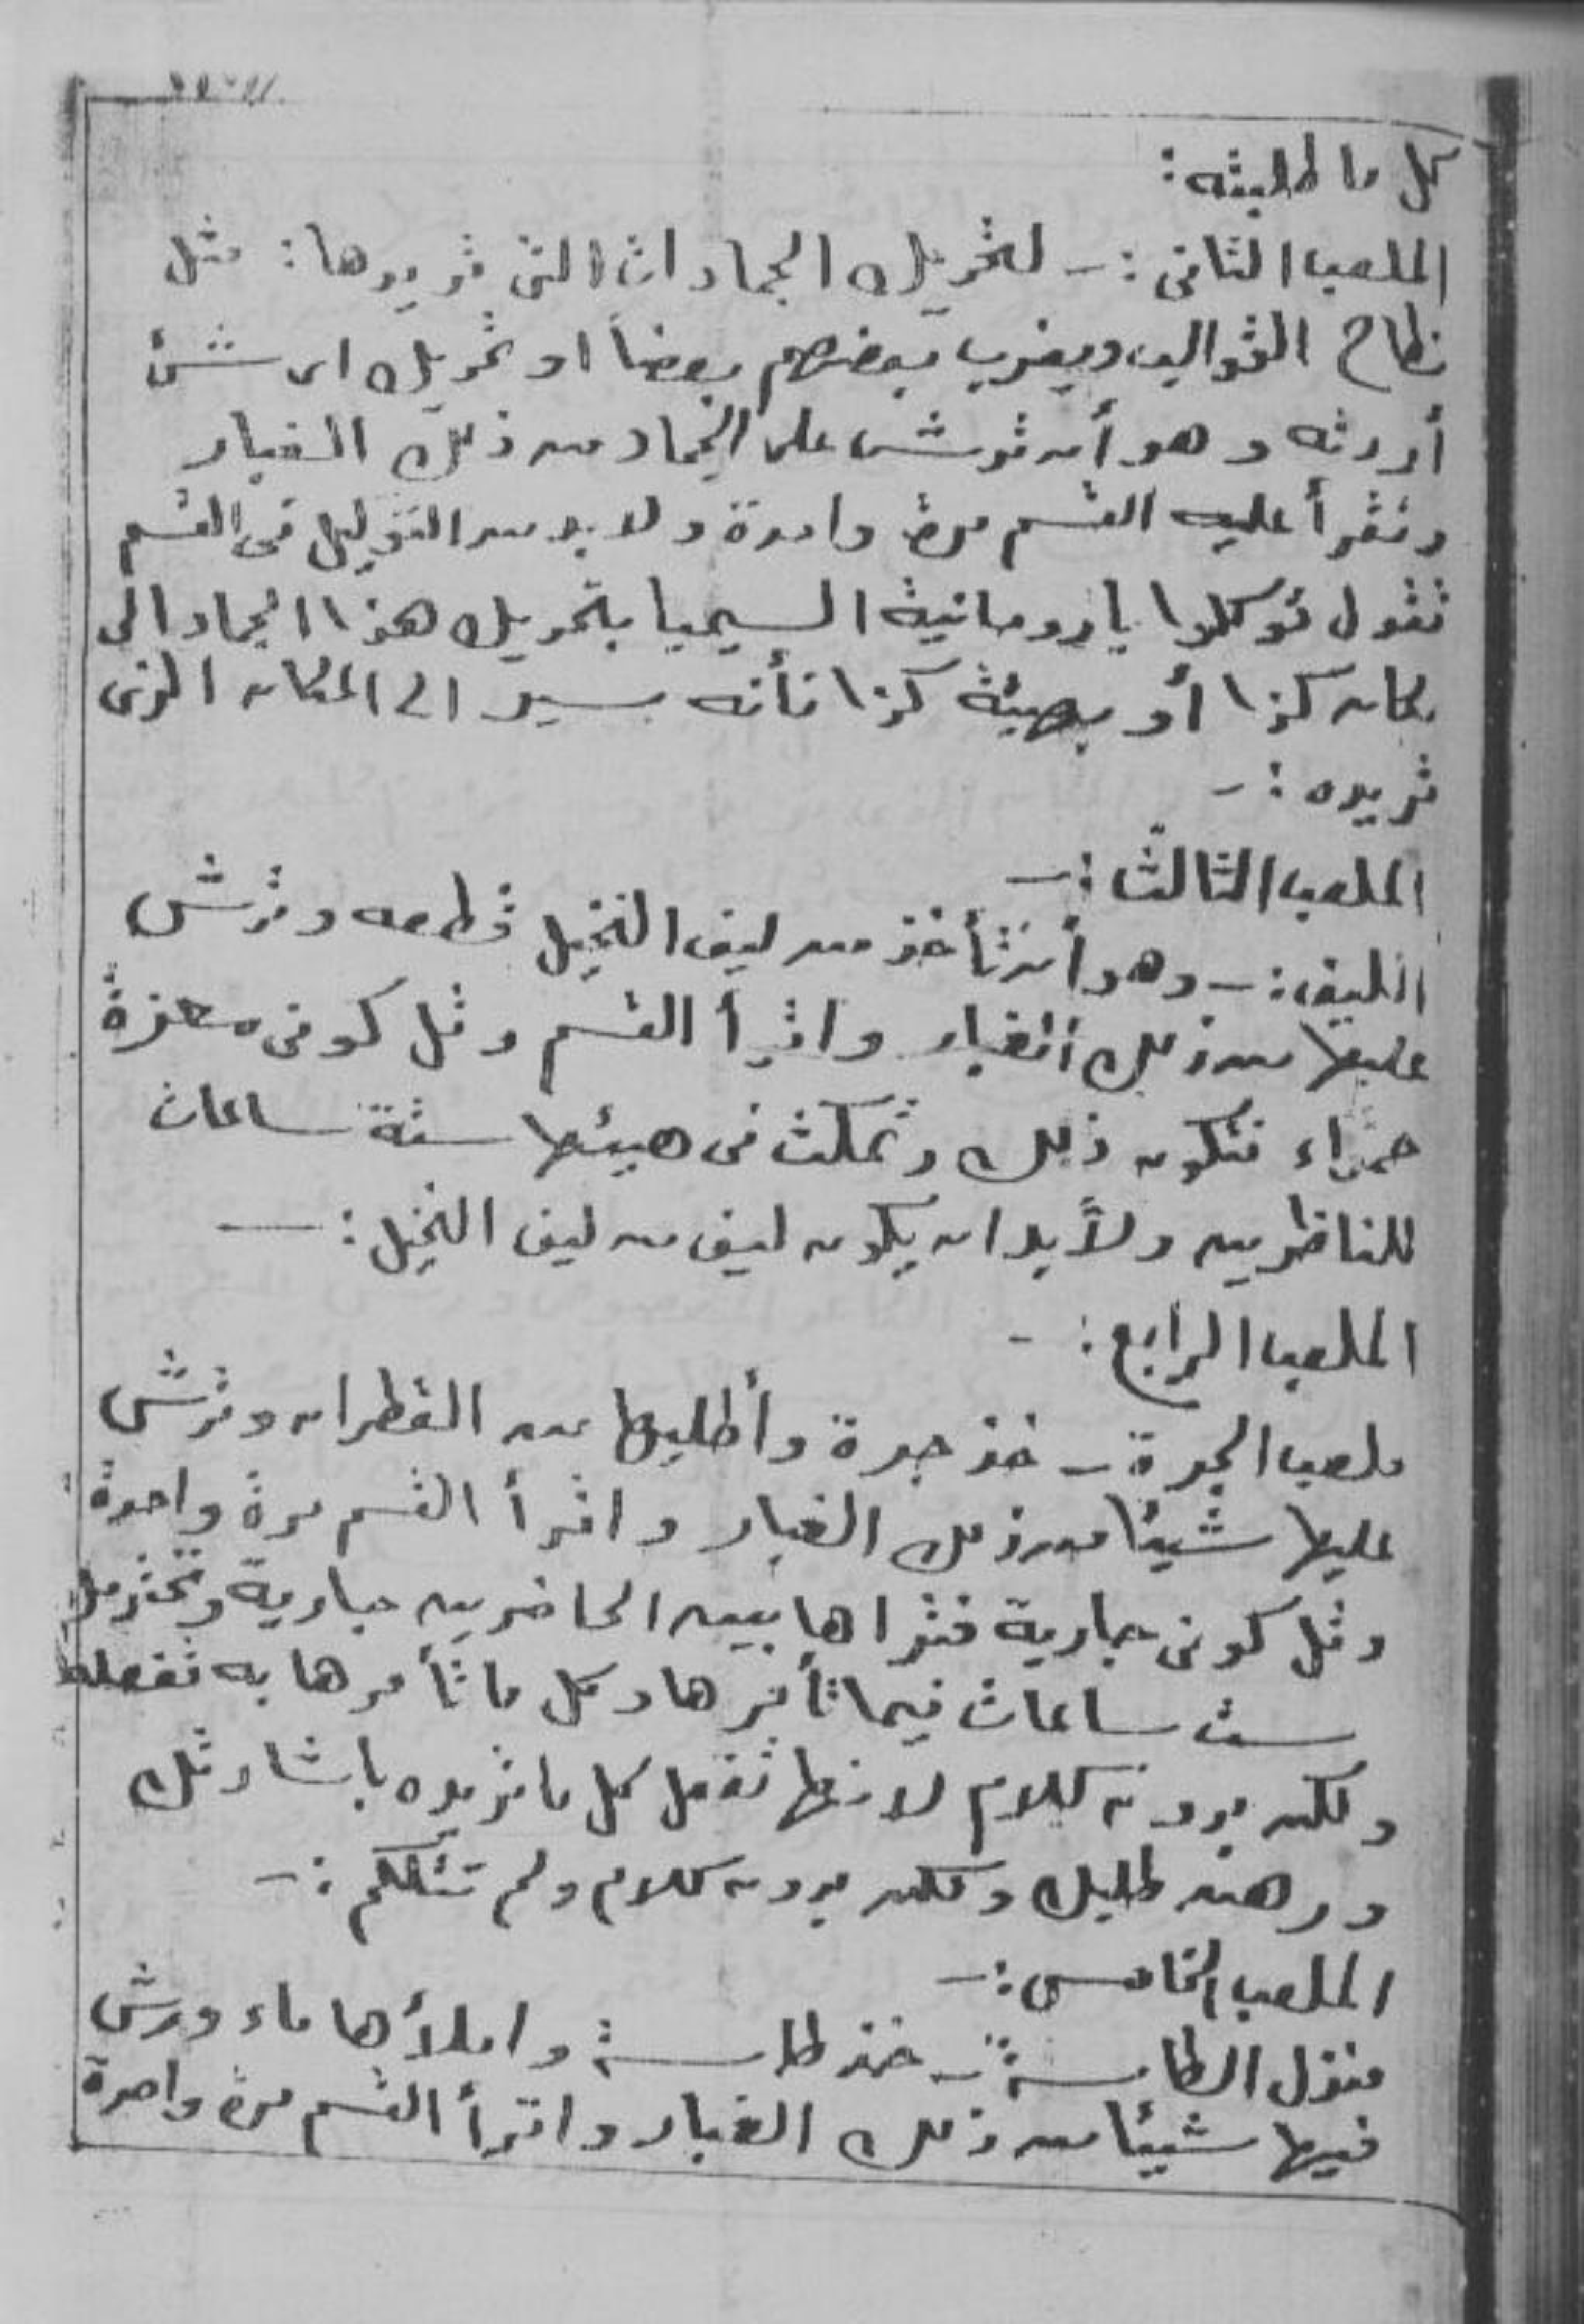 كل ما طلبته :
الملعب الثانى :- لتحريك الجمادات التى تريدها : مثل
نطاح القواليب ويضرب بعضهم بعضاً او تحريك اى شئ
أردته وهو أن ترش على الجماد من ذلك الغبار
وتقرأ عليه القسم مرة واحدة ولا بد من التوكيل فى القسم
تقول توكلوا يا روحانية السيميا بتحريك هذا الجماد الى
مكان كذا أو بهيئة كذا فأنه يسير الى المكان الذى
تريده :-
الملعب الثالث :-
الليف :- وهو أن تأخذ من ليف النخيل قطعه وترش
عليها من ذلك الغبار واقرأ القسم وقل كونى معزة
حمراء فتكون ذلك وتمكث فى هيئها ستة ساعات
للناظرين ولا بد ان يكون ليف من ليف النخيل :-
الملعب الرابع :-
ملعب الجرة - خذ جرة وأطليها من القطران وترش
عليها شيئا من ذلك الغبار واقرأ القسم مرة واحدة
وقل كونى جارية فتراها بين الحاضرين جارية وتخدمك
ست ساعات فيما تأمرها وكل ما تأمرها به تفعله
ولكن بدون كلام لانها تفعل كل ما تريده باشارتك
ورهن طلبك ولكن بدون كلام ولم تتكلم :-
الملعب الخامس :-
منزل الطاسة :- خذ طاسة واملأها ماء ورش
فيها شيئا من ذلك الغبار واقرأ القسم مرة واحدة